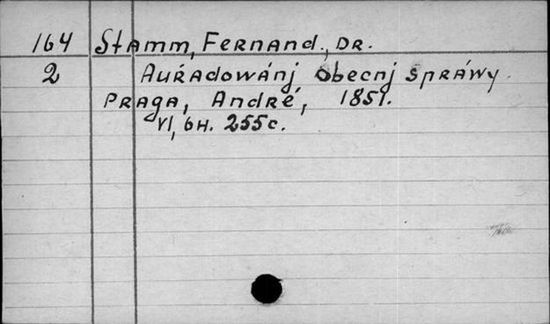 164 Stamm, Fernand., Dr.
2 Auřadowánj obecnj spráwy.
Praga, André, 1851.
VI, 6H. 255c.